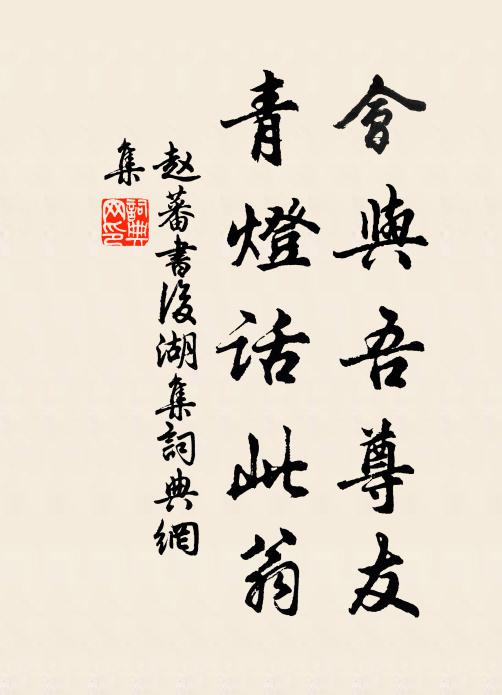 會與吾尊友
青燈話此翁
趙蕃書後湖集詞典網
集
詞典
网印